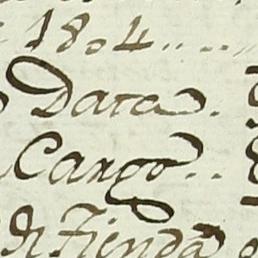 1804......
Data.
Cargo..
Tienda